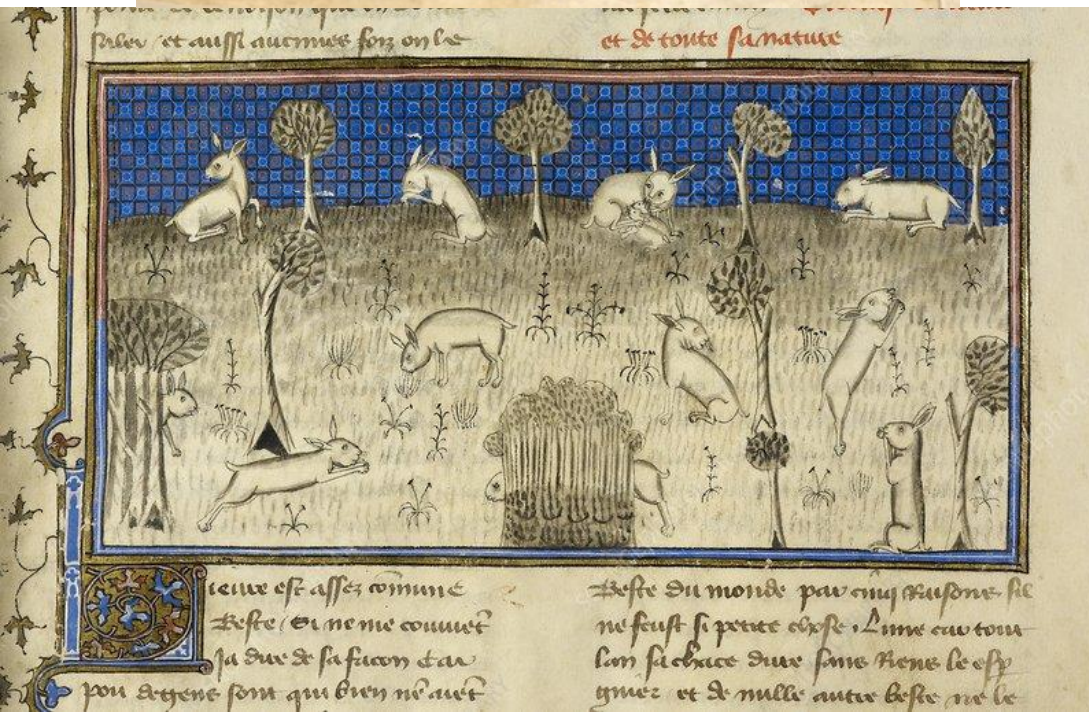 saler / et aussi aucunes foiz on le
ieure est assez comune
Beste / Si ne me couuiet
Ja dire de sa facon Car
pou degens sont qui bien ne aiet
et de toute sa nature
Beste du monde par cinq Raisons sil
ne feust si petite chose . Lune car tout
lan sa chace dure sans Riens le esp
gnier et de nulle autre beste ne le